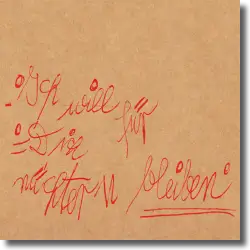 Ich will für
Dich
nüchterN bleiben